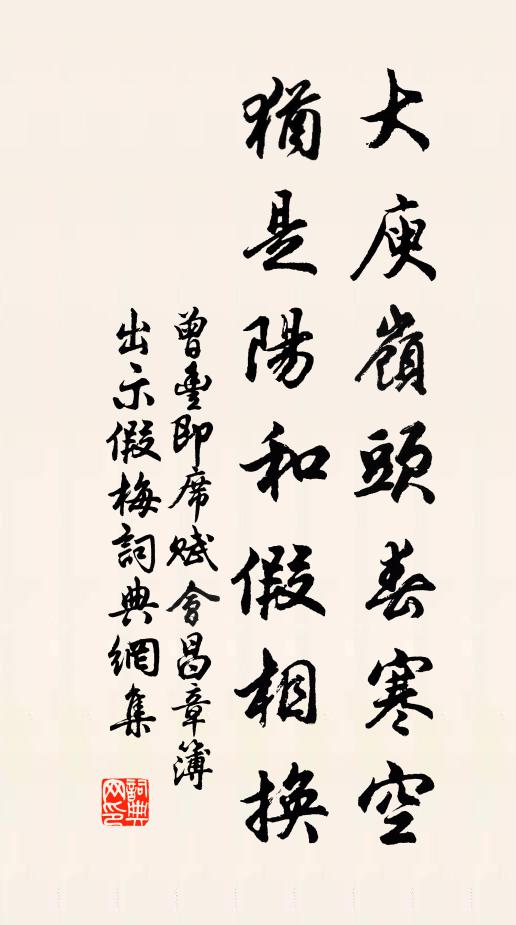 大庾嶺頭春寒空
猶是陽和假相換
曾豐即席賦會昌章簿
出示假梅詞典網集
詞典網印